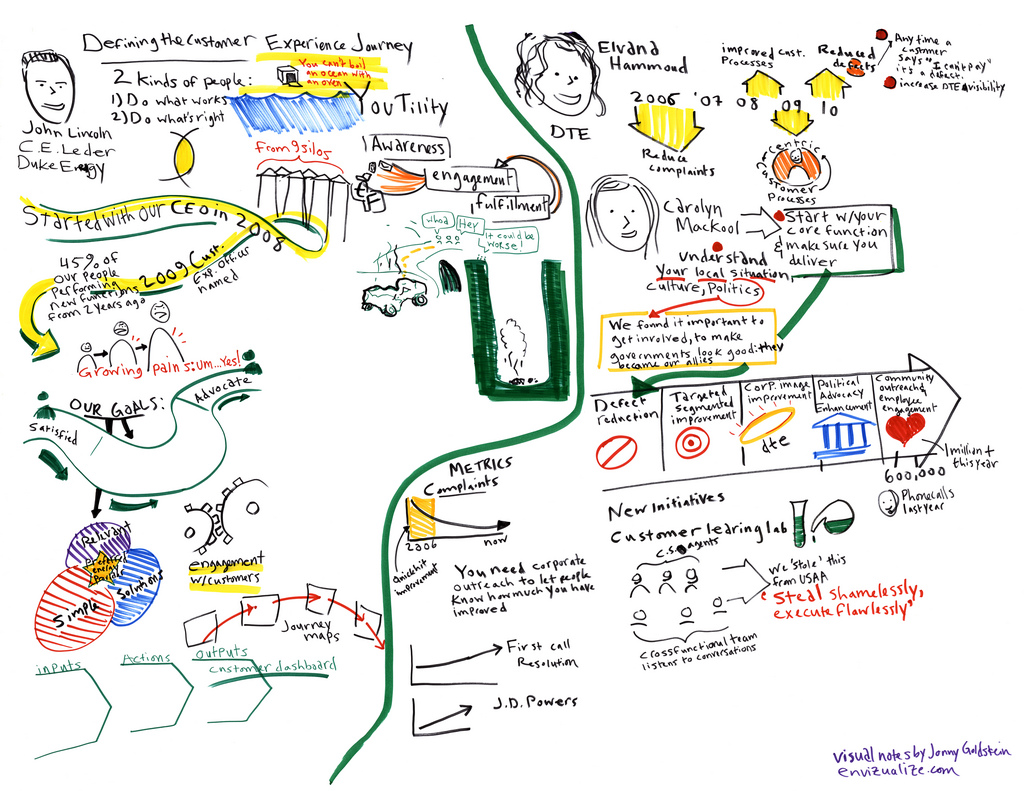 Defining the Customer Experience Journey
2 Kinds of people:
1) Do what works
2) Do what's right
You can't boil
an ocean with
an oven
YouTility
John Lincoln
C.E. Leder
Duke Energy
From 9 silos
Awareness
engagement
fulfillment
Started with our CEO in 2008
whoa
Hey
it could be
worse!
45% of
our people
performing
new functions
from 2 years ago
2009 Cust.
Exp. officer
named
Growing pains:um...Yes!
OUR GOALS:
Satisfied
Advocate
Relevant
Preferred
energy
Provider
Simple
Solutions
engagement
w/customers
Journey
maps
inputs
Actions
outputs
Customer dashboard
METRICS
Complaints
2006
now
quick hit
improvement
You need corporate
outreach to let people
know how much you have
improved
First call
Resolution
J.D. Powers
Elvana
Hammoud
DTE
improved cust.
Processes
Reduced
defects
Any time a
customer
says "I can't pay"
it's a defect.
increase DTE visibility
2006 '07 08 09 10
Reduce
complaints
centric
customer
Processes
Carolyn
Mackool
Start w/your
core function
& make sure you
deliver
understand
your local situation,
culture, Politics
We found it important to
get involved, to make
governments look good: they
became our allies
Defect
reduction
Targeted
segmented
improvement
Corp. image
improvement
dte
Political
Advocacy
Enhancement
Community
outreach &
employee
engagement
1 million +
this year
600,000
Phonecalls
last year
New Initiatives
Customer learing lab
c.s. agents
we 'stole' this
from USAA
"Steal shamelessly,
execute flawlessly"
crossfunctional team
listens to conversations
visual notes by Jonny Goldstein
envizualize.com